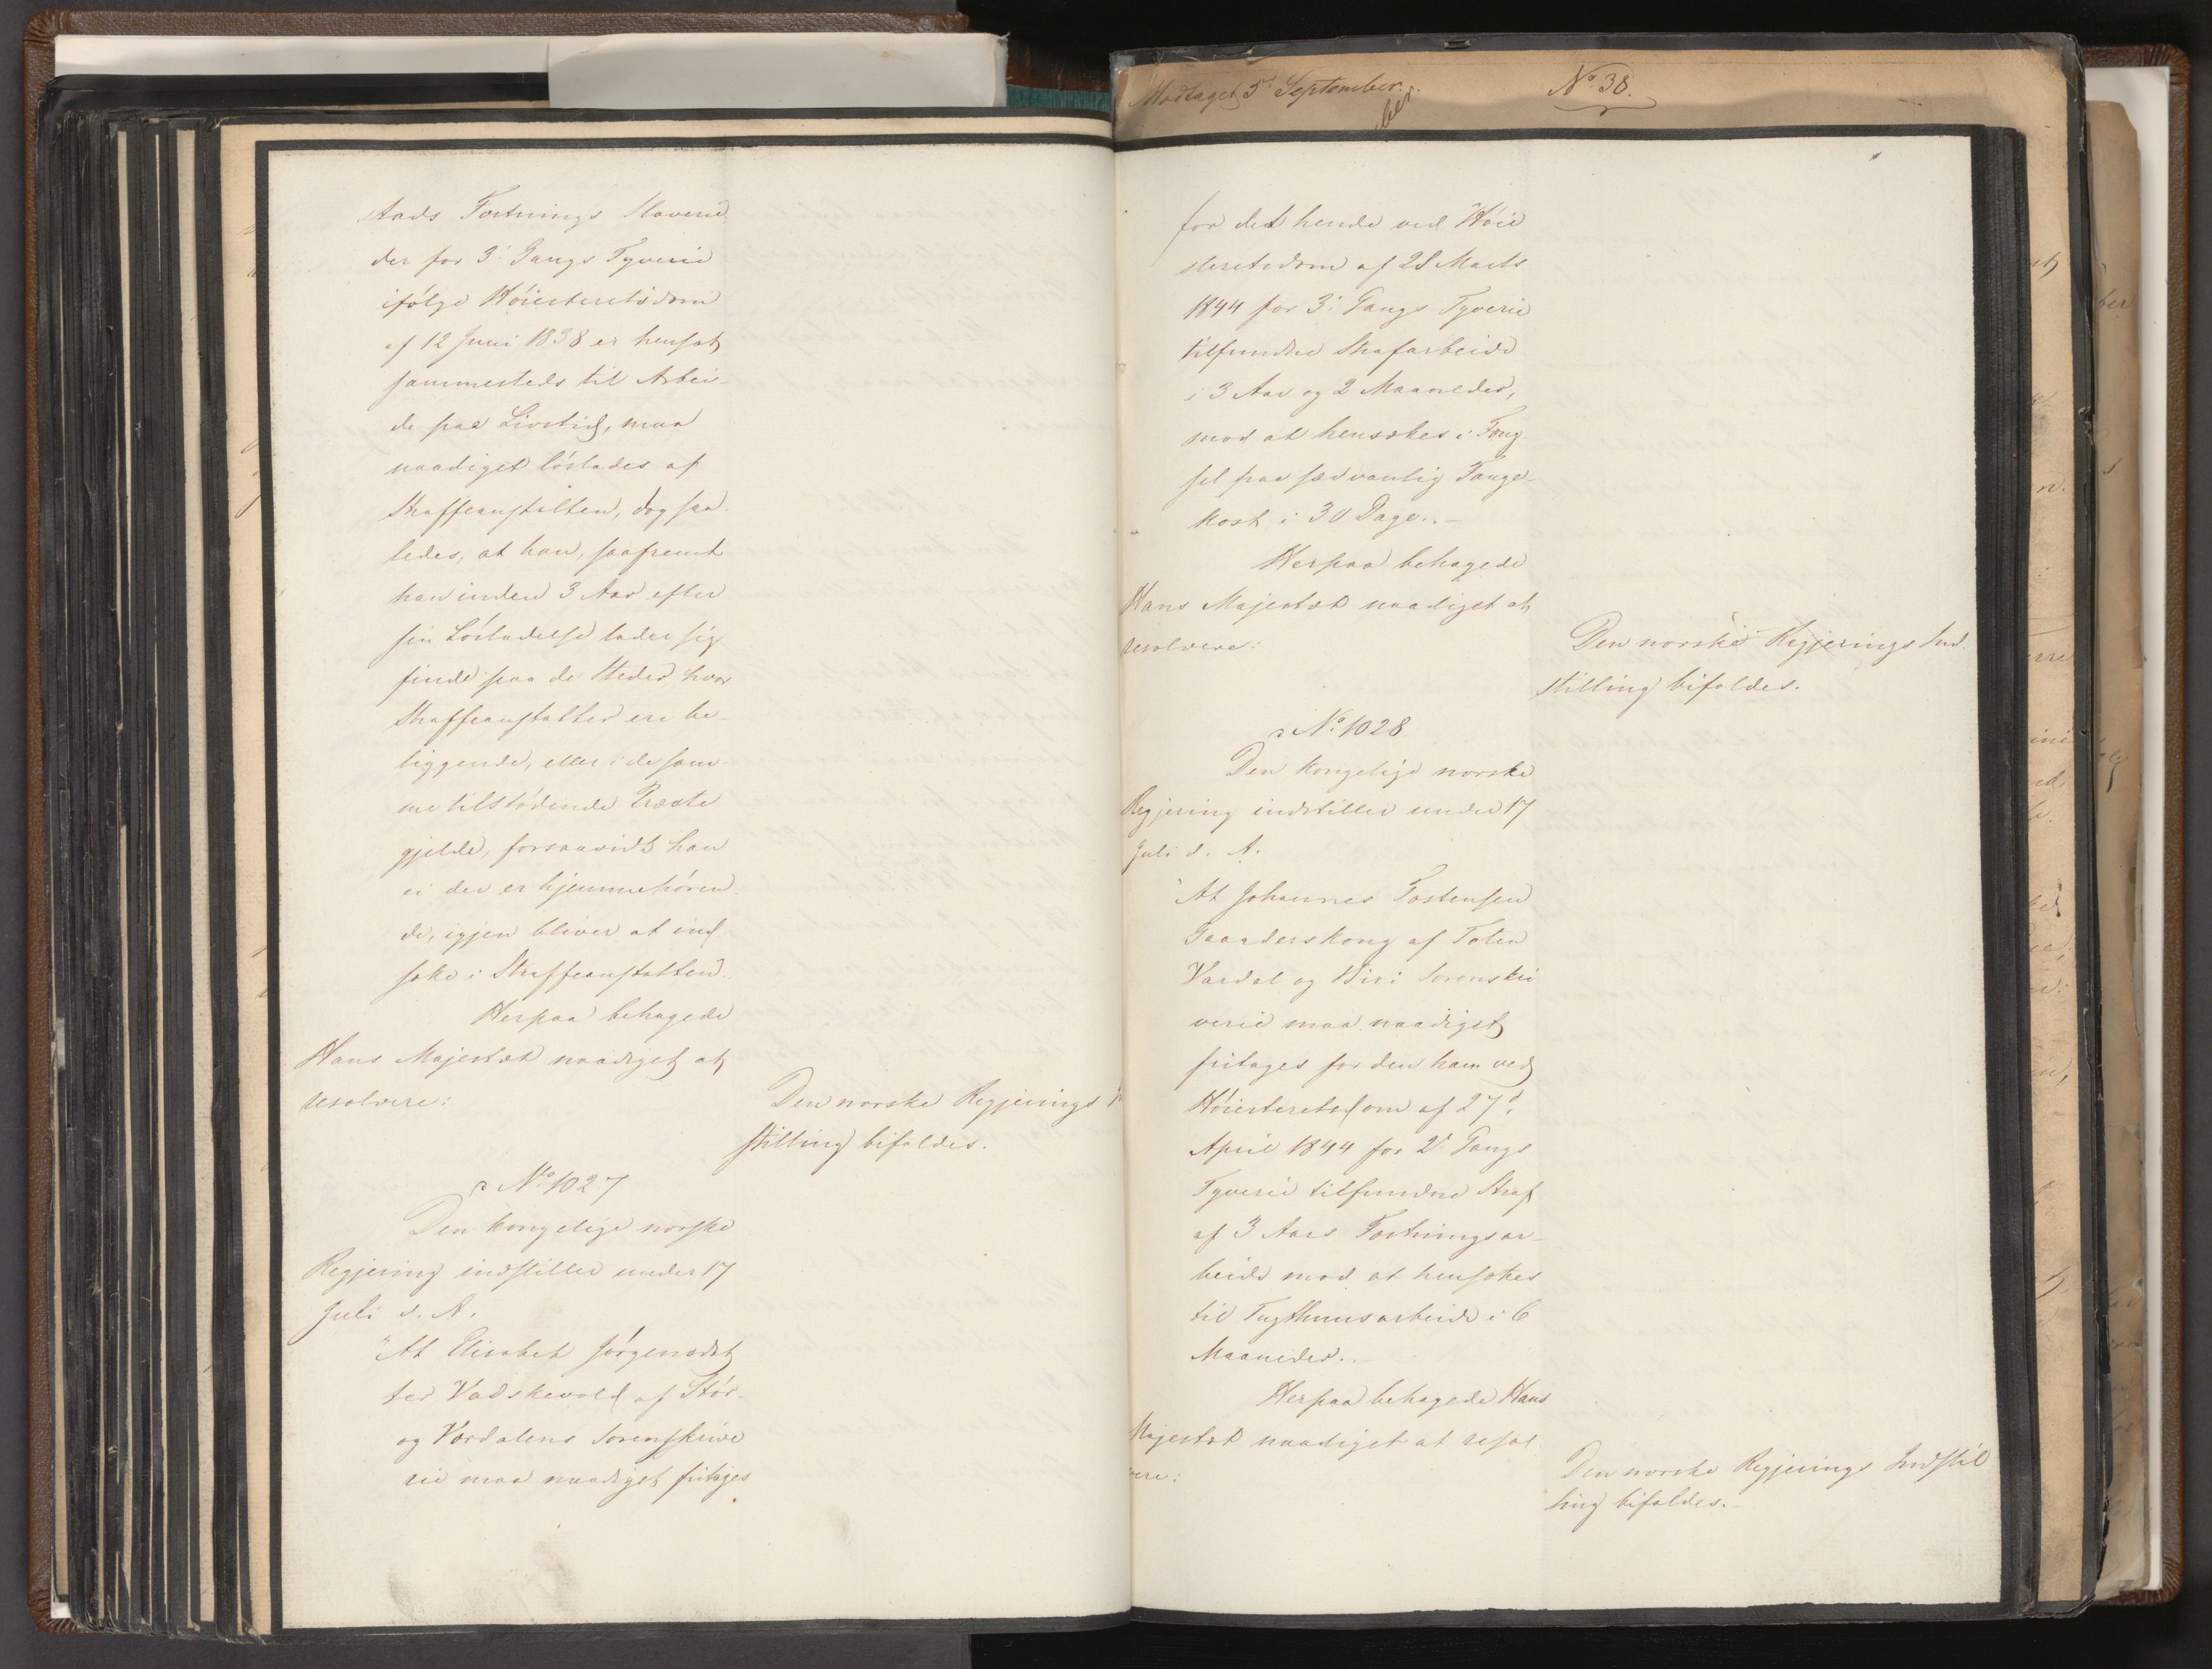 stads Fæstnings Slaverie
der for 3' Gangs Tyverie
ifølge Høiesteretsdom
af 12 Juni 1838 er hensat
sammesteds til Arbei-
de paa Livstid, maa
naadigst løslades af
Straffeanstalten, dog saa-
ledes, at han, saafremt
han inden 3 Aar efter
sin Løsladelse lader sig
finde paa de Steder hvor
Straffeanstalter ere be-
liggende, eller i de sam-
me tilstødende Præste
gjelde, forsaavidt han
ei der er hjemmehøren
de, igjen bliver at ind
sætte i Straffeanstalten.
Herpaa behagede
Hans Majestæt naadigst at
resolvere:
Den norske Regjerings
stilling bifaldes.
No 1027
Den kongelige norske
Regjering indstiller under 17
Juli d. A.
"At Elisabet Jørgensdat
ter Vadskevold af Stør-
og Værdalens Sorenskrive
rie maa naadigst fritages
Modtaget 5d September.
ber
No 38.
for det hende ved Høie
steretsdom af 28 Marts
1844 for 3' Gangs Tyverie
tilfundne Strafarbeide
i 3 Aar og 2 Maaneder,
mod at hensættes i Fæng-
sel paa sædvanlig Fange-
kost i 30 Dage. -
Herpaa behagede
Hans Majestæt naadigst at
resolvere:
Den norske Regjerings Ind
stilling bifaldes.
No 1028
Den kongelige norske
Regjering indstiller under 17
Juli d. A.
"At Johannes Tostensen
af Toten
Vardal og Biri Sorenskri
verie maa naadigst
fritages for den ham ved
Høiesteretsdom af 27d
April 1844 for 2' Gangs
Tyverie tilfundne Straf
af 3 Aars Fæstningsar-
beide mod at hensættes
til Tugthuusarbeide i 6
Maaneder. -
Herpaa behagede Hans
Majestæt naadigst at resol-
vere:
Den norske Regjerings Indstil
ling bifaldes. -